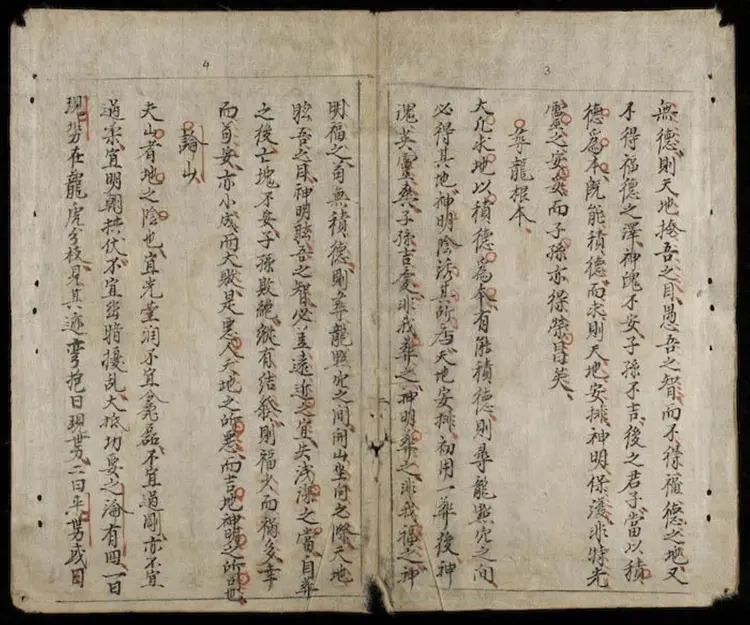 3
無德則天地掩吾之目愚吾之智而不得福德之地又
不得福德之澤神魄不安子孫不吉後之君子當以積
德爲本既能積德而求則天地安排神明保護非特先
靈之安妥而子孫亦得榮昌矣
尋龍根本
大凡求地以積德爲本有能積德則尋龍點穴之間
必得其地神明陰誘其所天地安排初用一葬後神
魂英靈子孫吉慶非我葬之神明葬之非我福之神
4
明福之苟無積德則尋龍點穴之間開山坐向之際天地
眩吾之目神明眩吾之智必至遠近之宜失淺深之當自葬
之後亡魂不安子孫敗絕縱有結發則福少而禍多幸
而苟安亦小成而大敗是惡人天地之所惡而吉地神明之所司也
論山
夫山者地之陰也宜光潤不宜磊不宜過剛亦不宜
過柔宜明朝拱伏不宜暗擾亂大抵功要之論有四一曰
現勢在龍虎分枝見其迹彎抱曰現勢二曰勢或目